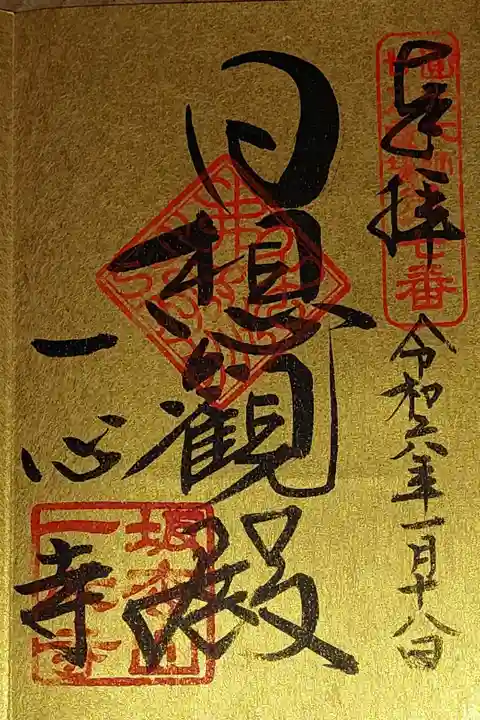 奉拝
令和六年一月十八日
日想観殿
一心寺
坂松山
一心寺